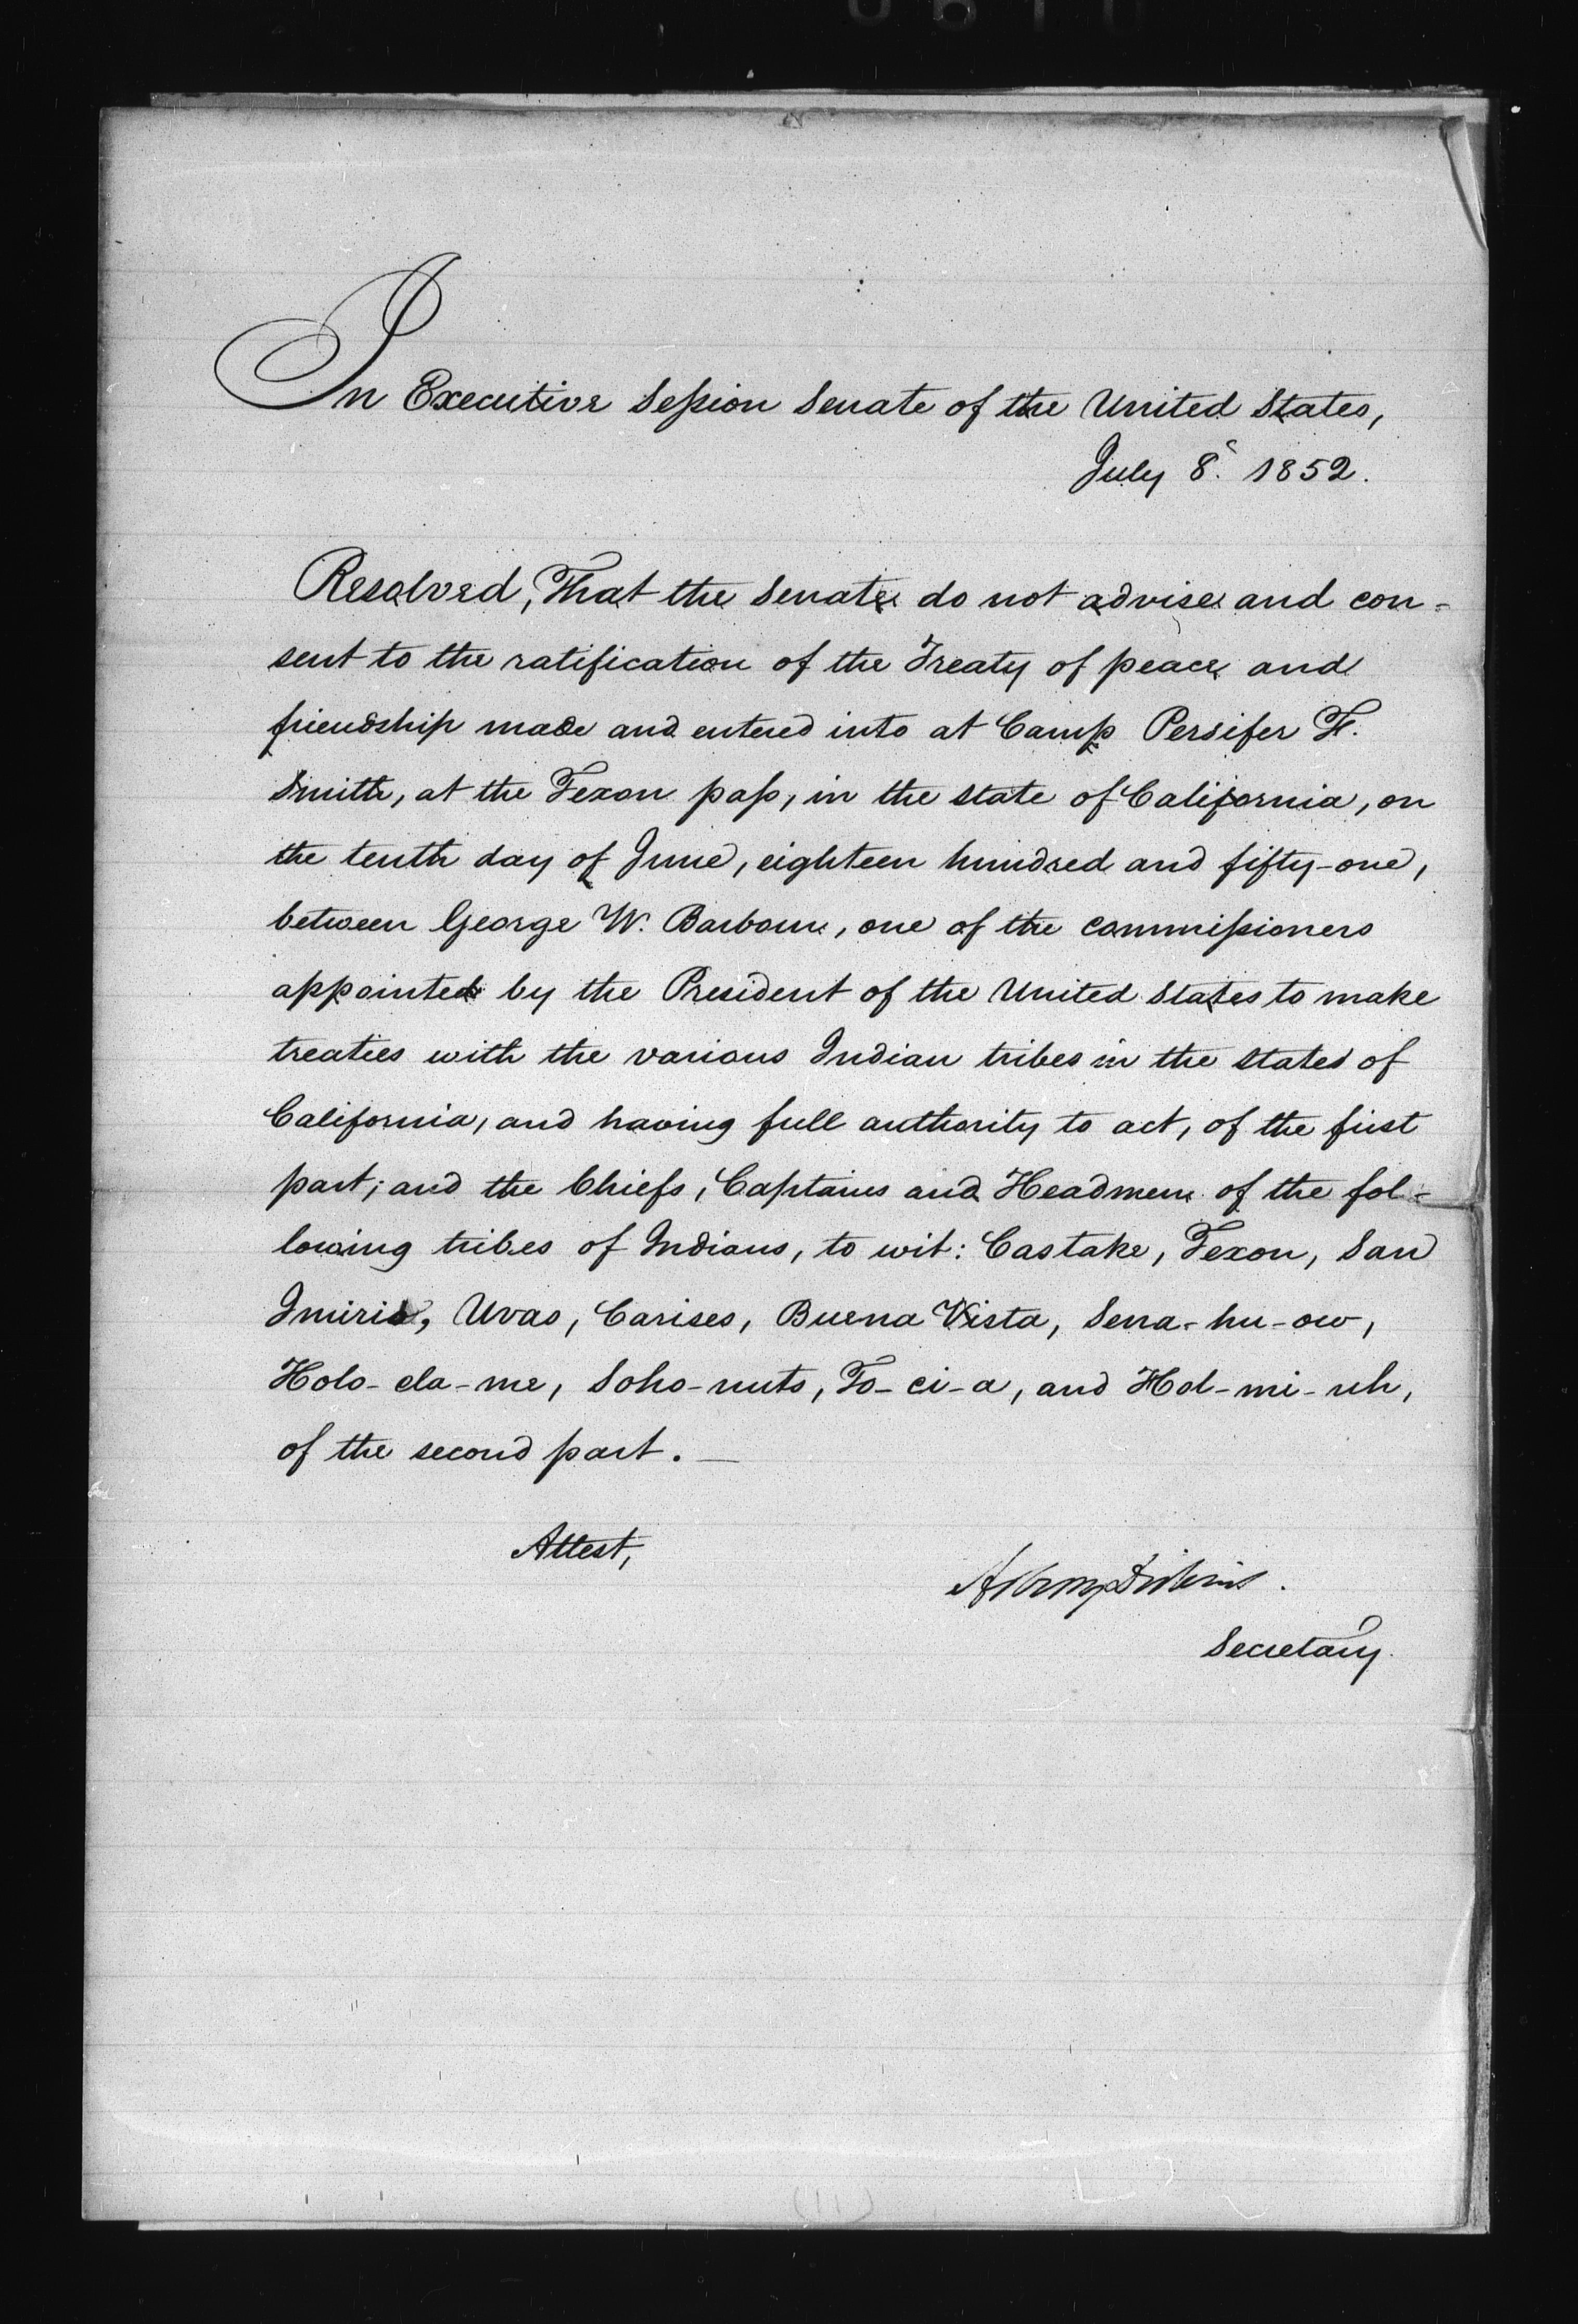 In Executive Session Senate of the United States,
July 8. 1852.
Resolved, That the Senate do not advise and con-
sent to the ratification of the Treaty of peace and
friendship made and entered into at Camp Persifer F.
Smith, at the Texon pass, in the state of California, on
the tenth day of June, eighteen hundred and fifty-one,
between George W. Barbour, one of the commissioners
appointed by the President of the United States to make
treaties with the various Indian tribes in the states of
California, and having full authority to act, of the first
part; and the Chiefs, Captains and Headmen of the fol-
lowing tribes of Indians, to wit: Castake, Texon, San
Imirio, Uvas, Carises, Buena Vista, Sena-hu-ow,
Holo-cla-me, Soho-nuts, To-ci-a, and Hol-mi-uh,
of the second part. —
Attest,
Asbury Dickins.
Secretary.
(11)